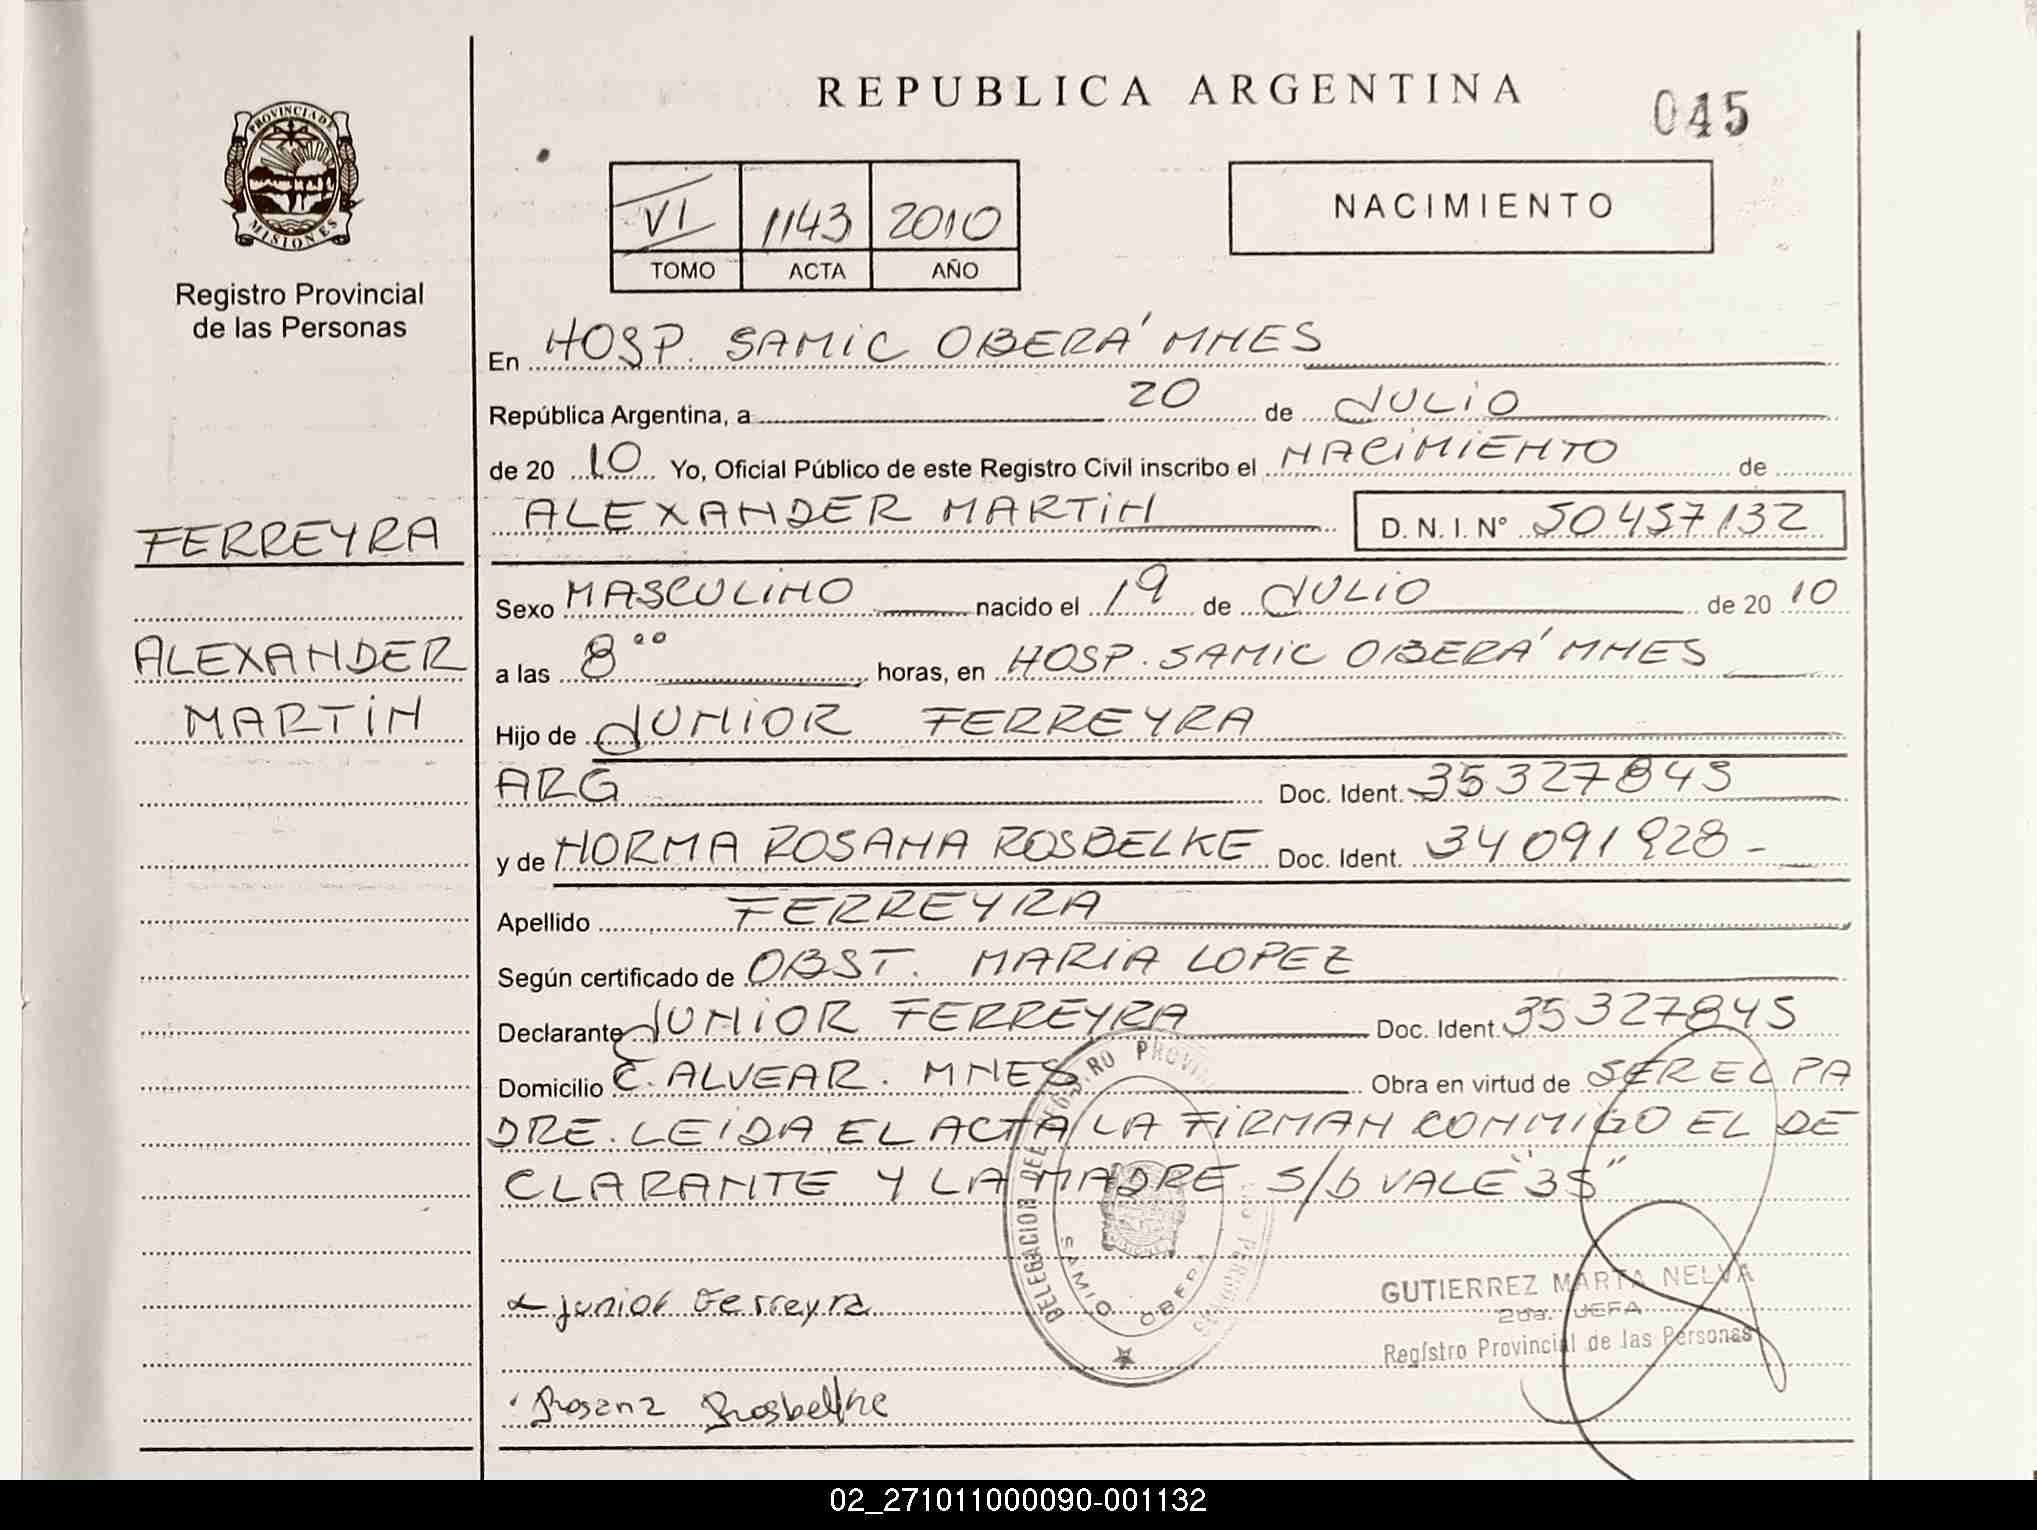 REPUBLICA ARGENTINA
045
PROVINCIA DE
MISIONES
Registro Provincial
de las Personas
VI 1143 2010
TOMO ACTA AÑO
NACIMIENTO
En HOSP. SAMIC OBERÁ MNES
República Argentina, a 20 de JULIO
de 20 10 Yo, Oficial Público de este Registro Civil inscribo el NACIMIENTO de
ALEXANDER MARTIN D. N. I. Nº 50457132
FERREYRA
ALEXANDER
MARTIN
Sexo MASCULINO nacido el 19 de JULIO de 20 10
a las 8°° horas, en HOSP. SAMIC OBERÁ MNES
Hijo de JUNIOR FERREYRA
ARG Doc. Ident. 35327845
y de NORMA ROSANA ROSBELKE Doc. Ident. 34091928-
Apellido FERREYRA
Según certificado de OBST. MARIA LOPEZ
Declarante JUNIOR FERREYRA Doc. Ident. 35327845
Domicilio C. ALVEAR. MNES Obra en virtud de SER EL PA
DRE. LEIDA EL ACTA LA FIRMAN CONMIGO EL DE
CLARANTE Y LA MADRE S/b VALE "35"
DELEGACION DEL REGISTRO PROVIN
SAMIC OBERA
junior Ferreyra
Rosana Rosbelke
GUTIERREZ MARTA NELVA
2da. JEFA
Registro Provincial de las Personas
02_271011000090-001132